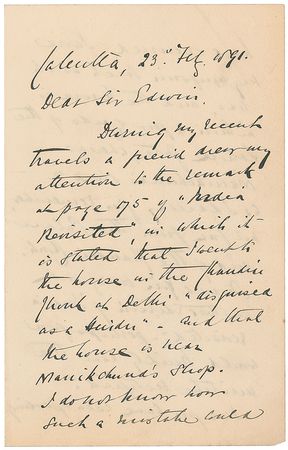 Calcutta, 23d Feb. 1891.
Dear Sir Edwin,
During my recent
travels a friend drew my
attention to the remark
at page 175 of "India
Revisited", in which it
is stated that I went to
the house in the Chandni
Chouk at Delhi "disguised
as a Hindu" - and that
the house is near
Manikchund's Shop.
I do not know how
such a mistake could